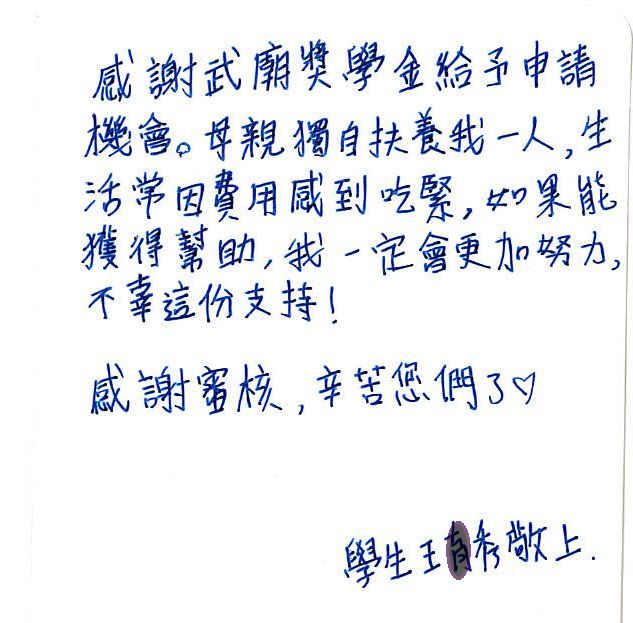 感謝武廟獎學金給予申請
機會。母親獨自扶養我一人,生
活常因費用感到吃緊,如果能
獲得幫助,我一定會更加努力,
不辜這份支持!
感謝審核,辛苦您們了♡
學生王秀敬上.